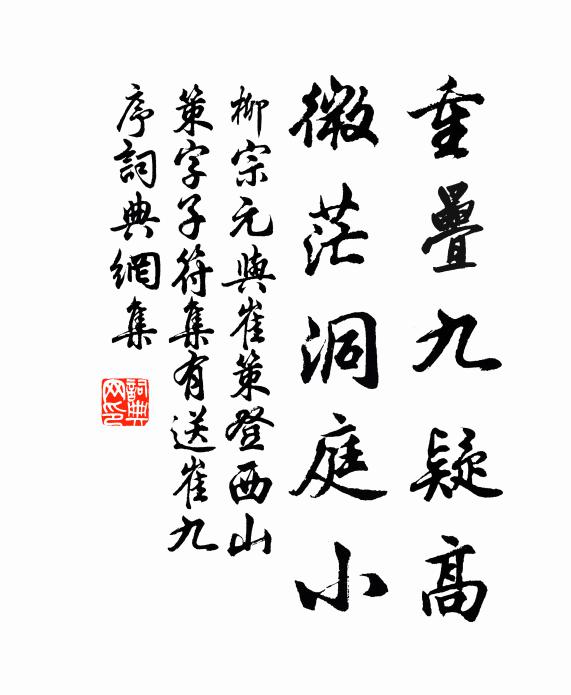 重疊九疑高
微茫洞庭小
柳宗元與崔策登西山
策字子符集有送崔九
序詞典網集
詞典
网印